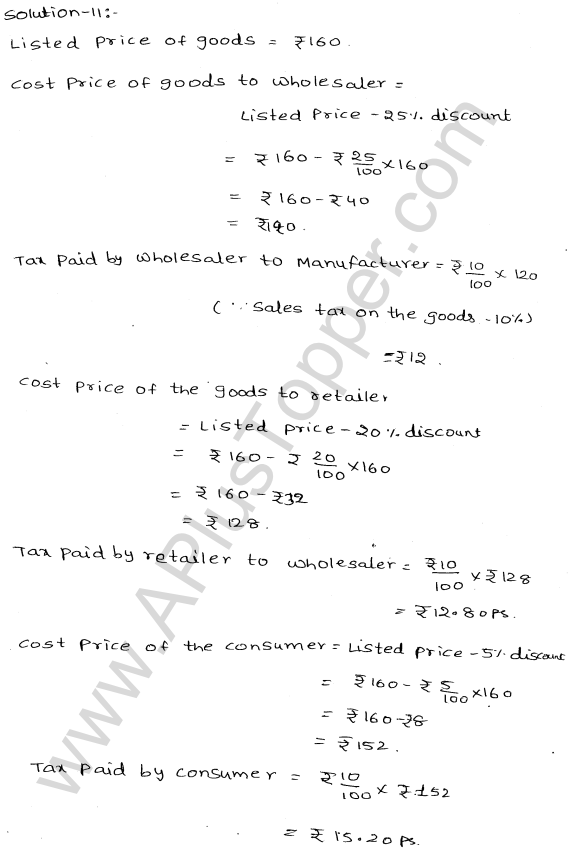 Solution-11:-
Listed Price of goods = ₹160.
Cost Price of goods to wholesaler =
Listed Price - 25% discount
= ₹160 - ₹ 25/100 × 160
= ₹160 - ₹40
= ₹120.
Tax Paid by wholesaler to Manufacturer = ₹ 10/100 × 120
(∵ Sales tax on the goods - 10%)
= ₹12.
Cost Price of the goods to retailer
= Listed price - 20% discount
= ₹160 - ₹ 20/100 × 160
= ₹160 - ₹32
= ₹128.
Tax paid by retailer to wholesaler = ₹10/100 × ₹128
= ₹12.80 Ps.
Cost Price of the consumer = Listed price - 5% discount
= ₹160 - ₹ 5/100 × 160
= ₹160 - ₹8
= ₹152.
Tax Paid by consumer = ₹10/100 × ₹152
= ₹15.20 Ps.
www.APlusTopper.com